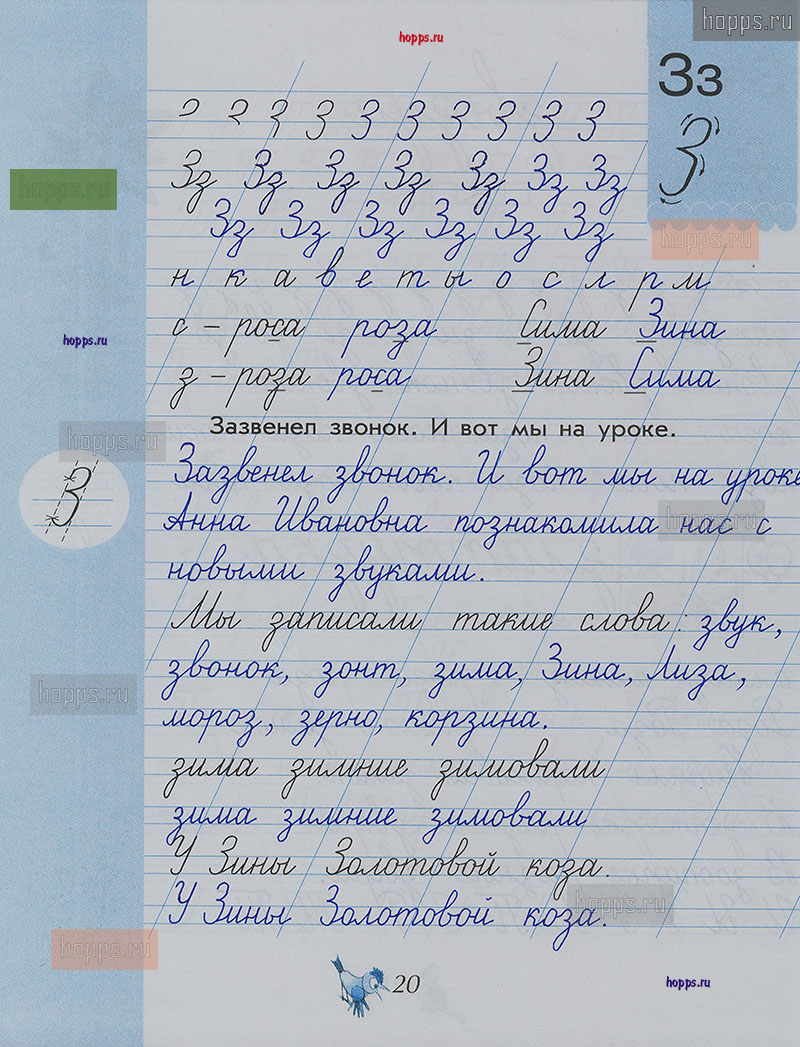 hopps.ru
hopps.ru
Зз
З
З З З З З З З З З З
Зз Зз Зз Зз Зз Зз Зз
hopps.ru
Зз Зз Зз Зз Зз Зз
hopps.ru
н к а в е т ы о с л р м
с – роса роза Сима Зина
hopps.ru
з – роза роса Зина Сима
Зазвенел звонок. И вот мы на уроке.
hopps.ru
Зазвенел звонок. И вот мы на уроке
З
Анна Ивановна познакомила нас с
hopps.ru
новыми звуками.
Мы записали такие слова: звук,
звонок, зонт, зима, Зина, Лиза,
hopps.ru
мороз, зерно, корзина.
зима зимние зимовали
зима зимние зимовали
У Зины Золотовой коза.
У Зины Золотовой коза.
hopps.ru
hopps.ru
20
hopps.ru